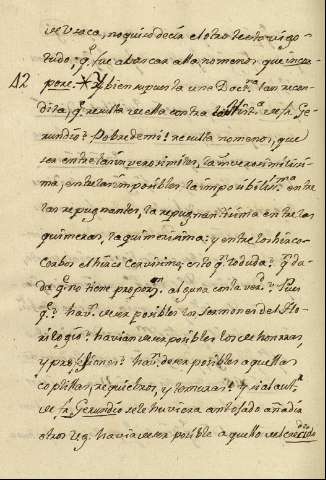 de Vraca, no quiso decir el otro texto vigo-
tudo; q.e fue a buscar alla nomenos, que
12 pone. * Y bien supuesta una Doct.na tan recon-
dita, q.e resulta de ella contra la Hist.a de fr. Ge-
rundio? Pobre de mi! resulta nomenos, que
sea entre las inverosimiles, la inverosimilissi-
ma, entre las imposibles la imposibilis.ma entre
las repugnantes, la repugnantisima entre los
quimeras, la quimerisima: y entre los hirco-
cerbos el hirco Cervisimo; esto q.e lo duda? q.e da-
da q.e no tiene propor.n alguna con la ver.d? Pues
q.e? hav.n de ser posibles los sermones del Flo-
rilogio? havian de ser posibles los de honras,
y profesiones? hav.n de ser posibles aquellas
coplillas, requiebros, y ternuras? Y si al aut.r
de fr. Gerundio se le huviera antojado añadir
otros Vg. havia de ser posible aquello del